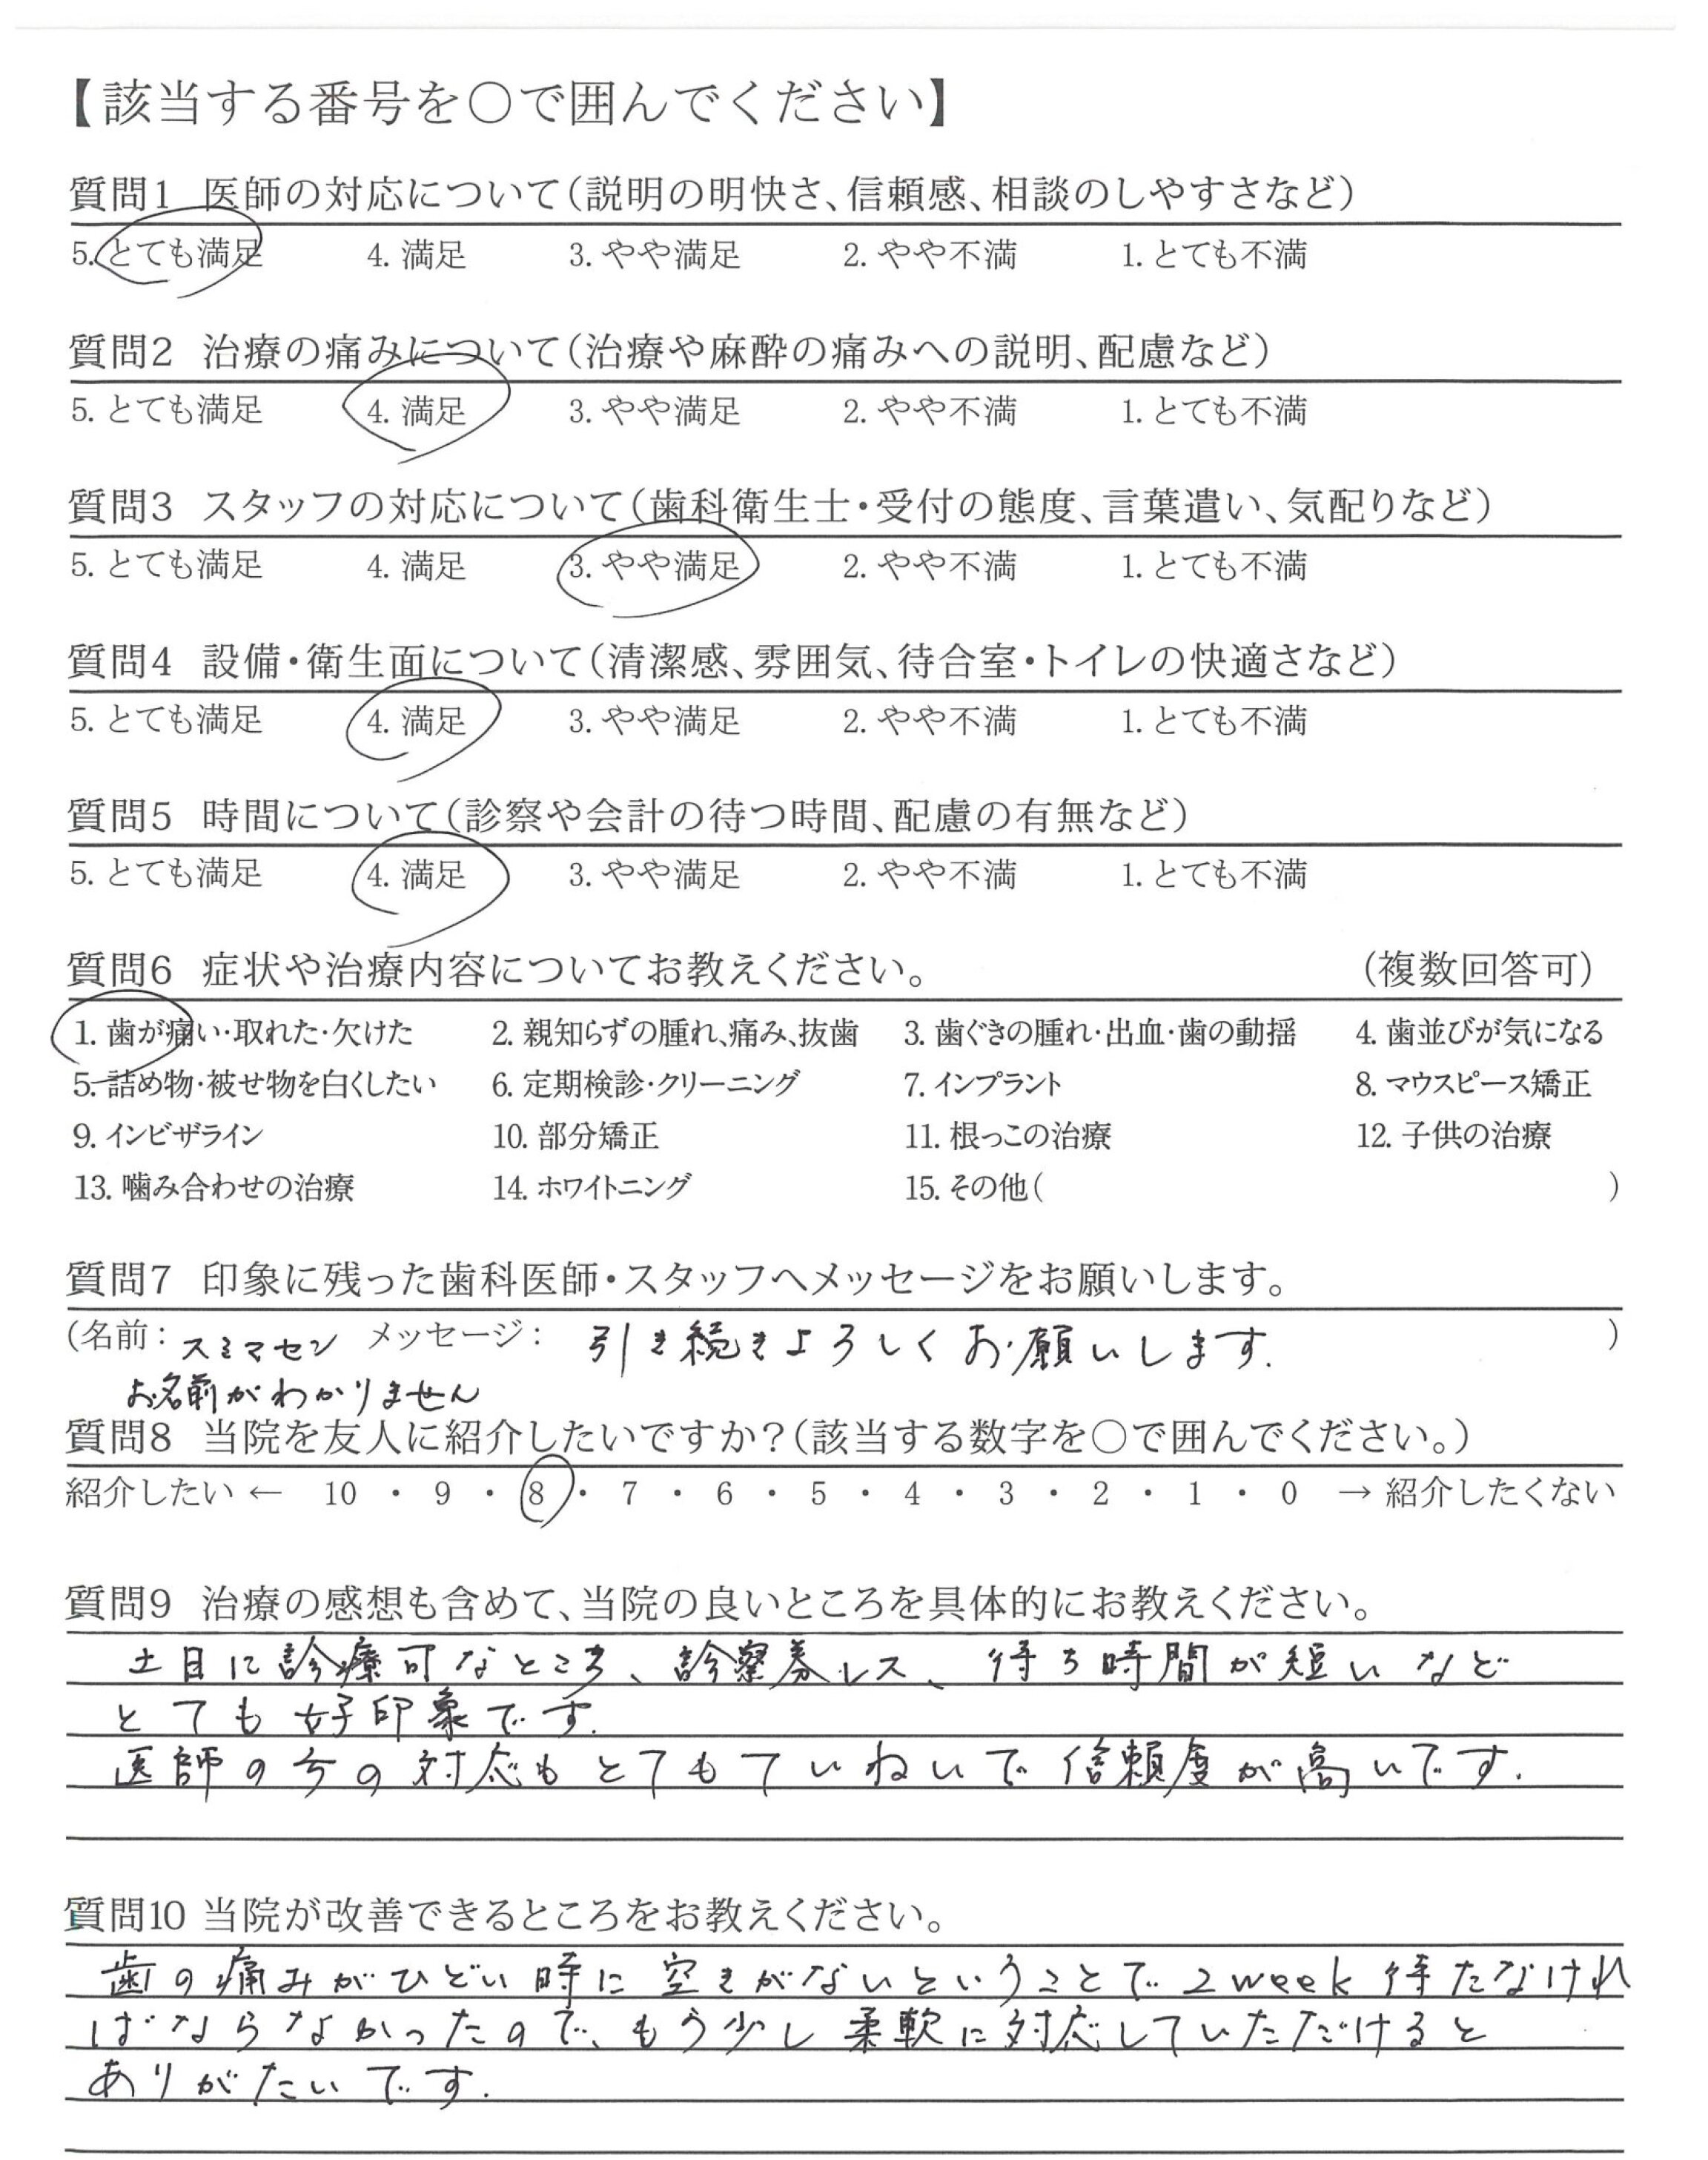 【該当する番号を○で囲んでください】
質問1 医師の対応について(説明の明快さ、信頼感、相談のしやすさなど)
5. とても満足 4. 満足 3. やや満足 2. やや不満 1. とても不満
質問2 治療の痛みについて(治療や麻酔の痛みへの説明、配慮など)
5. とても満足 4. 満足 3. やや満足 2. やや不満 1. とても不満
質問3 スタッフの対応について(歯科衛生士・受付の態度、言葉遣い、気配りなど)
5. とても満足 4. 満足 3. やや満足 2. やや不満 1. とても不満
質問4 設備・衛生面について(清潔感、雰囲気、待合室・トイレの快適さなど)
5. とても満足 4. 満足 3. やや満足 2. やや不満 1. とても不満
質問5 時間について(診察や会計の待つ時間、配慮の有無など)
5. とても満足 4. 満足 3. やや満足 2. やや不満 1. とても不満
質問6 症状や治療内容についてお教えください。 (複数回答可)
1. 歯が痛い・取れた・欠けた 2. 親知らずの腫れ、痛み、抜歯 3. 歯ぐきの腫れ・出血・歯の動揺 4. 歯並びが気になる
5. 詰め物・被せ物を白くしたい 6. 定期検診・クリーニング 7. インプラント 8. マウスピース矯正
9. インビザライン 10. 部分矯正 11. 根っこの治療 12. 子供の治療
13. 噛み合わせの治療 14. ホワイトニング 15. その他( )
質問7 印象に残った歯科医師・スタッフへメッセージをお願いします。
(名前: スミマセン メッセージ: 引き続きよろしくお願いします. )
お名前がわかりません
質問8 当院を友人に紹介したいですか?(該当する数字を○で囲んでください。)
紹介したい ← 10 ・ 9 ・ 8 ・ 7 ・ 6 ・ 5 ・ 4 ・ 3 ・ 2 ・ 1 ・ 0 → 紹介したくない
質問9 治療の感想も含めて、当院の良いところを具体的にお教えください。
土日に診療可なところ、診察券レス、待ち時間が短いなど
とても好印象です.
医師の方の対応もとてもていねいで信頼度が高いです.
質問10 当院が改善できるところをお教えください。
歯の痛みがひどい時に空きがないということで2week待たなけれ
ばならなかったので、もう少し柔軟に対応していただけると
ありがたいです.